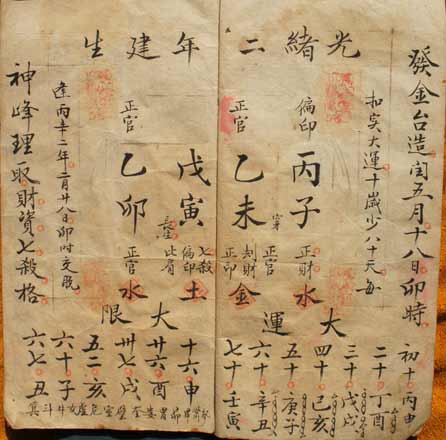 光緒二年建生
發金台造閏五月十八日卯時
扣实大运十歲少八十天每
偏印
丙子
正財
水
正官
乙未
正官
刦財
正印
金
戊寅
長生
七殺
偏印
比肩
土
正官
乙卯
正官
水
逢丙辛二年二月廿八日卯时交脫
神峰理取財資七殺格
大運
初十丙申
二十丁酉
三十戊戌
四十己亥
五十庚子
六十辛丑
七十壬寅
大限
十六申
廿六酉
卅七戌
五二亥
六十子
六七丑